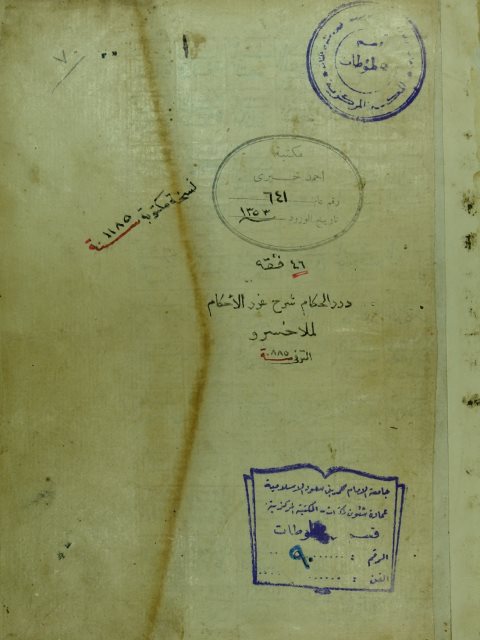 ٧٠
قسم
المخطوطات
المكتبة المركزية
مكتبة
احمد خيري
رقم عام ٦٤١
تاريخ الورود ١٣٥٣
نسخة مكتوبة سنة ١١٨٥
٤٦ فقه
درر الحكام شرح غرر الأحكام
لملا خسرو
المتوفى سنة ٨٨٥
جامعة الإمام محمد بن سعود الإسلامية
عمادة شئون المكتبات - المكتبة المركزية
قسم المخطوطات
الرقم : ٩٠
الفن :